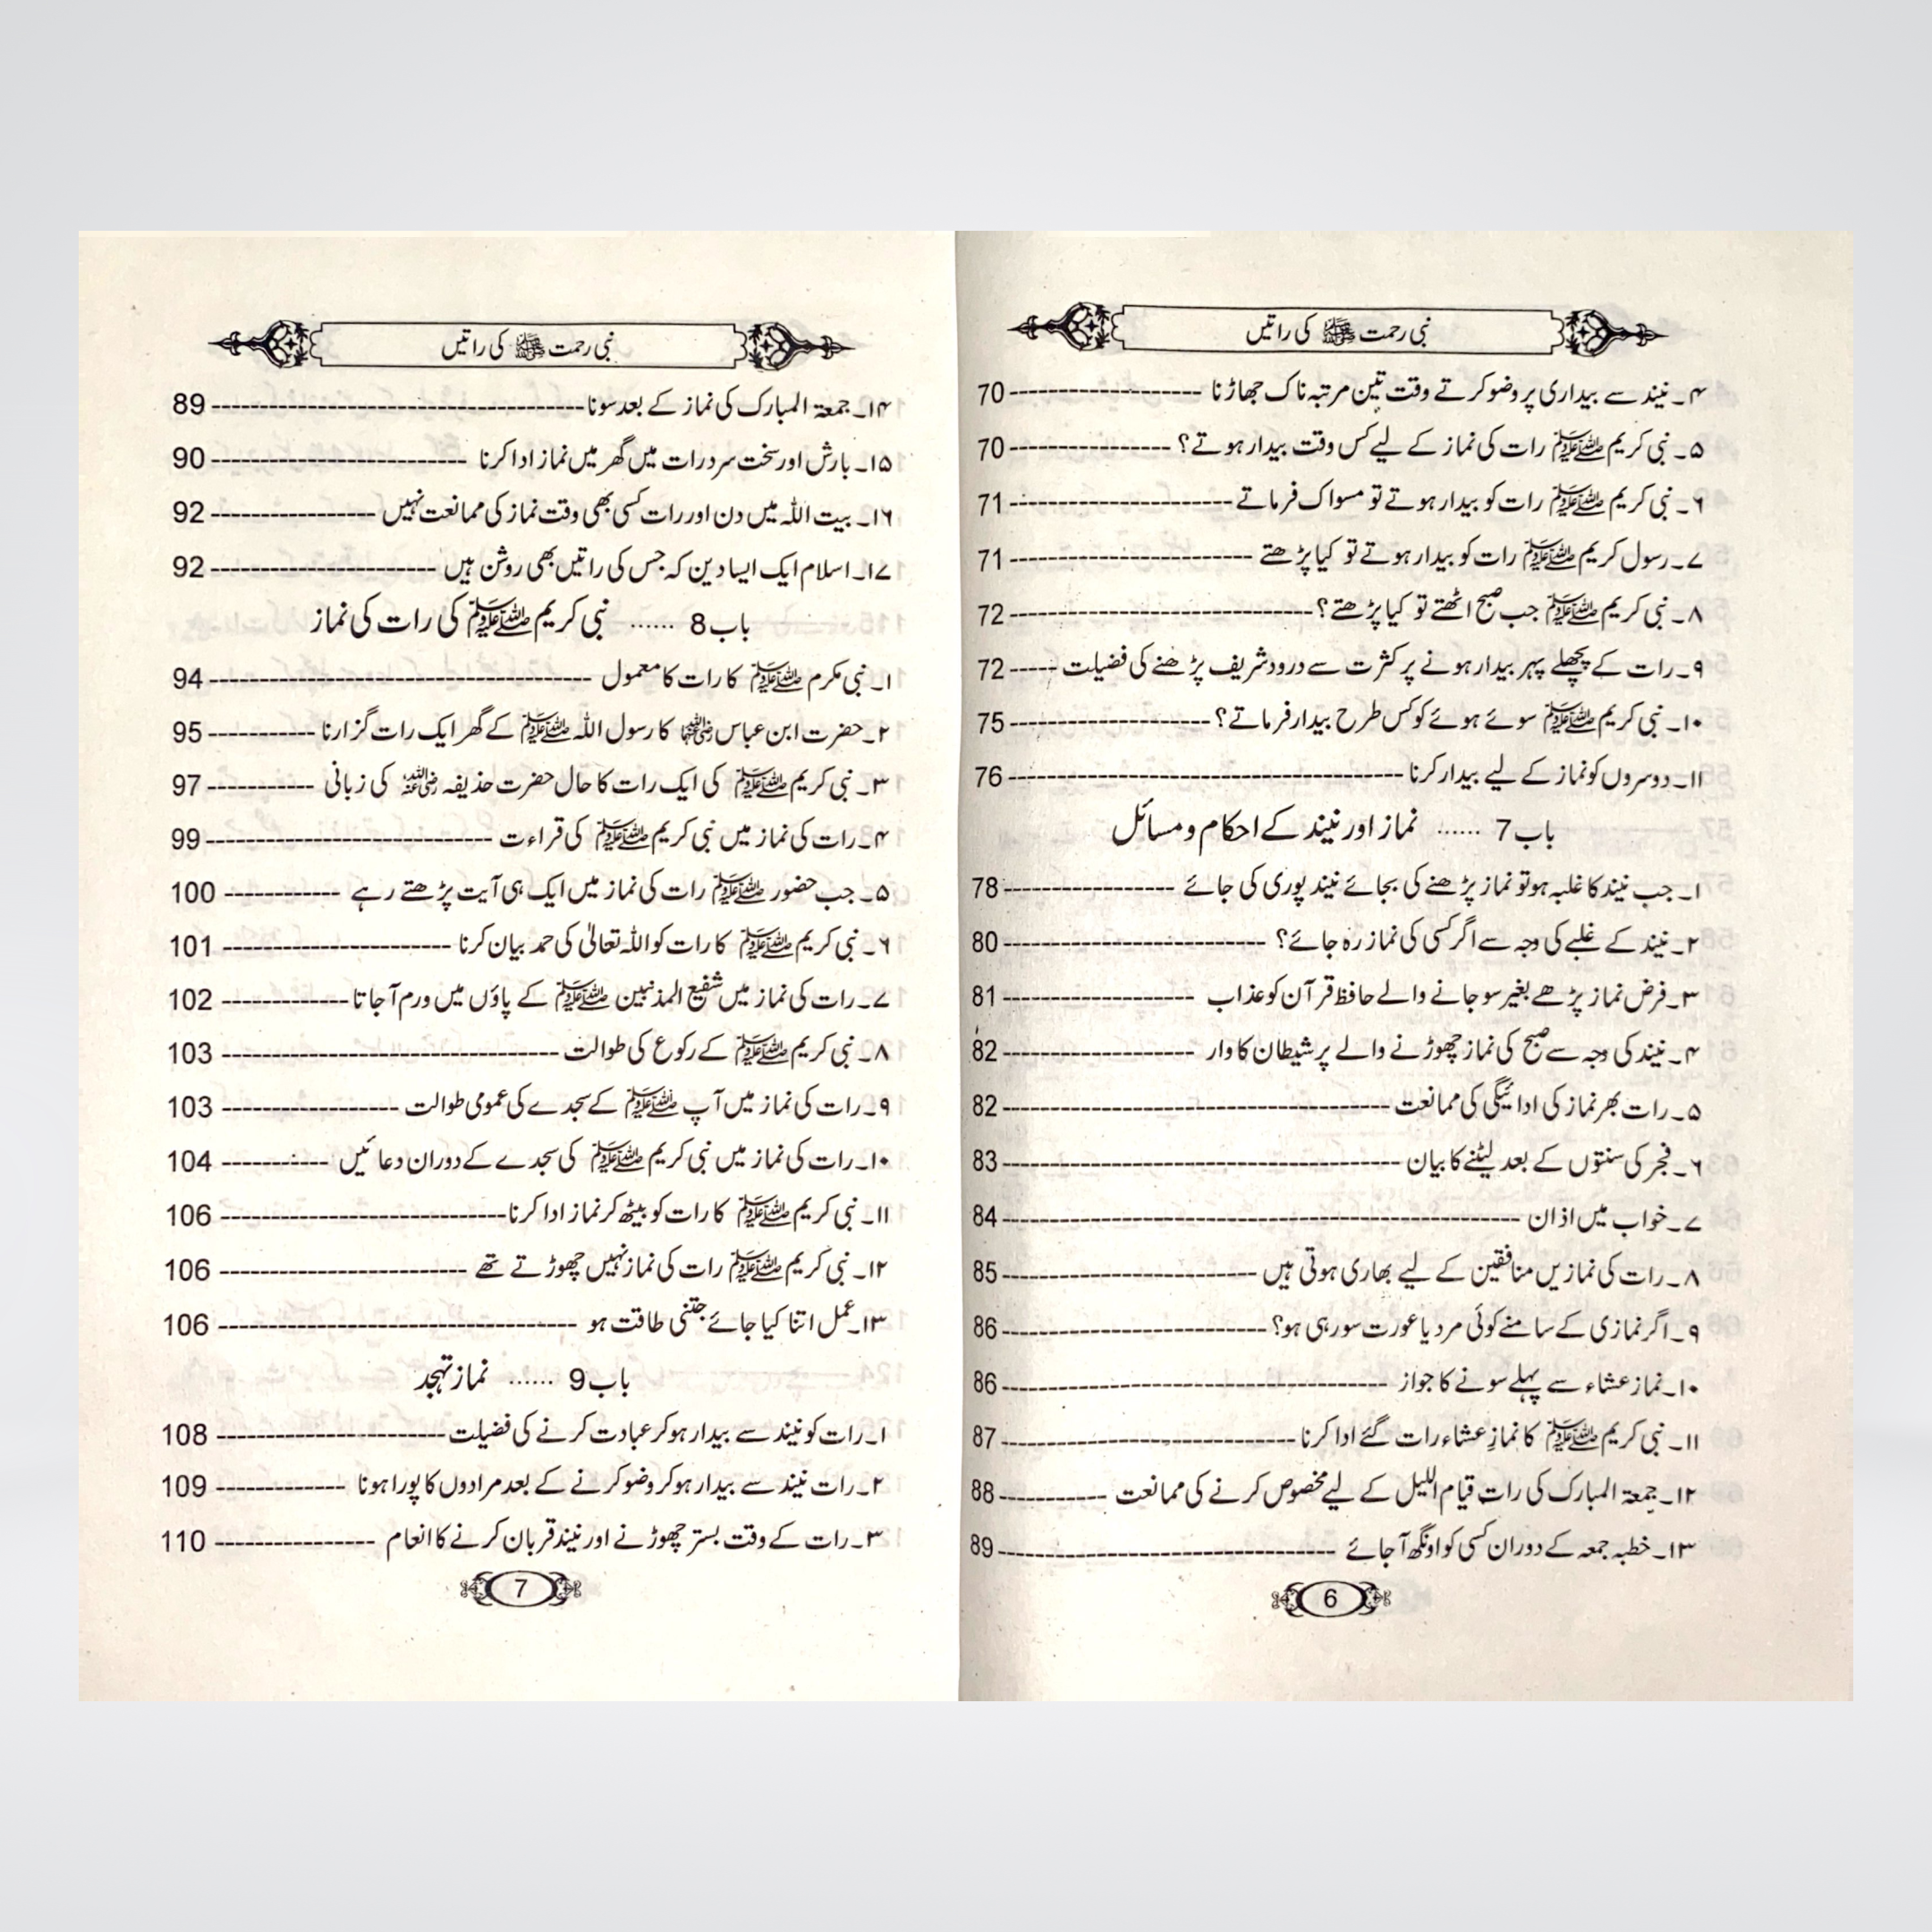 نبی رحمت ﷺ کی راتیں
۴۔ نیند سے بیداری پر وضو کرتے وقت تین مرتبہ ناک جھاڑنا ---------------- 70
۵۔ نبی کریم ﷺ رات کی نماز کے لیے کس وقت بیدار ہوتے؟ ------------- 70
۶۔ نبی کریم ﷺ رات کو بیدار ہوتے تو مسواک فرماتے ------------------ 71
۷۔ رسول کریم ﷺ رات کو بیدار ہوتے تو کیا پڑھتے -------------------- 71
۸۔ نبی کریم ﷺ جب صبح اٹھتے تو کیا پڑھتے؟ ------------------------- 72
۹۔ رات کے پچھلے پہر بیدار ہونے پر کثرت سے درود شریف پڑھنے کی فضیلت ---- 72
۱۰۔ نبی کریم ﷺ سوئے ہوئے کو کس طرح بیدار فرماتے؟ ---------------- 75
۱۱۔ دوسروں کو نماز کے لیے بیدار کرنا -------------------------------- 76
باب 7 ...... نماز اور نیند کے احکام و مسائل
۱۔ جب نیند کا غلبہ ہو تو نماز پڑھنے کی بجائے نیند پوری کی جائے -------------- 78
۲۔ نیند کے غلبے کی وجہ سے اگر کسی کی نماز رہ جائے؟ --------------------- 80
۳۔ فرض نماز پڑھے بغیر سو جانے والے حافظ قرآن کو عذاب ---------------- 81
۴۔ نیند کی وجہ سے صبح کی نماز چھوڑنے والے پر شیطان کا وار ---------------- 82
۵۔ رات بھر نماز کی ادائیگی کی ممانعت -------------------------------- 82
۶۔ فجر کی سنتوں کے بعد لیٹنے کا بیان --------------------------------- 83
۷۔ خواب میں اذان ------------------------------------------- 84
۸۔ رات کی نمازیں منافقین کے لیے بھاری ہوتی ہیں --------------------- 85
۹۔ اگر نمازی کے سامنے کوئی مرد یا عورت سو رہی ہو؟ ---------------------- 86
۱۰۔ نماز عشاء سے پہلے سونے کا جواز -------------------------------- 86
۱۱۔ نبی کریم ﷺ کا نمازِ عشاء رات گئے ادا کرنا ------------------------ 87
۱۲۔ جمعۃ المبارک کی رات قیام اللیل کے لیے مخصوص کرنے کی ممانعت --------- 88
۱۳۔ خطبہ جمعہ کے دوران کسی کو اونگھ آ جائے ---------------------------- 89
6
نبی رحمت ﷺ کی راتیں
۱۴۔ جمعۃ المبارک کی نماز کے بعد سونا ------------------------------- 89
۱۵۔ بارش اور سخت سرد رات میں گھر میں نماز ادا کرنا --------------------- 90
۱۶۔ بیت اللہ میں دن اور رات کسی بھی وقت نماز کی ممانعت نہیں -------------- 92
۱۷۔ اسلام ایک ایسا دین کہ جس کی راتیں بھی روشن ہیں ------------------- 92
باب 8 ...... نبی کریم ﷺ کی رات کی نماز
۱۔ نبی مکرم ﷺ کا رات کا معمول -------------------------------- 94
۲۔ حضرت ابن عباس رضی اللہ عنہما کا رسول اللہ ﷺ کے گھر ایک رات گزارنا --------- 95
۳۔ نبی کریم ﷺ کی ایک رات کا حال حضرت حذیفہ رضی اللہ عنہ کی زبانی --------- 97
۴۔ رات کی نماز میں نبی کریم ﷺ کی قراءت ------------------------ 99
۵۔ جب حضور ﷺ رات کی نماز میں ایک ہی آیت پڑھتے رہے ---------- 100
۶۔ نبی کریم ﷺ کا رات کو اللہ تعالیٰ کی حمد بیان کرنا ------------------- 101
۷۔ رات کی نماز میں شفیع المذنبین ﷺ کے پاؤں میں ورم آ جاتا ---------- 102
۸۔ نبی کریم ﷺ کے رکوع کی طوالت ---------------------------- 103
۹۔ رات کی نماز میں آپ ﷺ کے سجدے کی عمومی طوالت --------------- 103
۱۰۔ رات کی نماز میں نبی کریم ﷺ کی سجدے کے دوران دعائیں --------- 104
۱۱۔ نبی کریم ﷺ کا رات کو بیٹھ کر نماز ادا کرنا ------------------------ 106
۱۲۔ نبی کریم ﷺ رات کی نماز نہیں چھوڑتے تھے --------------------- 106
۱۳۔ عمل اتنا کیا جائے جتنی طاقت ہو ------------------------------ 106
باب 9 ...... نماز تہجد
۱۔ رات کو نیند سے بیدار ہو کر عبادت کرنے کی فضیلت ------------------- 108
۲۔ رات نیند سے بیدار ہو کر وضو کرنے کے بعد مرادوں کا پورا ہونا ----------- 109
۳۔ رات کے وقت بستر چھوڑنے اور نیند قربان کرنے کا انعام -------------- 110
7